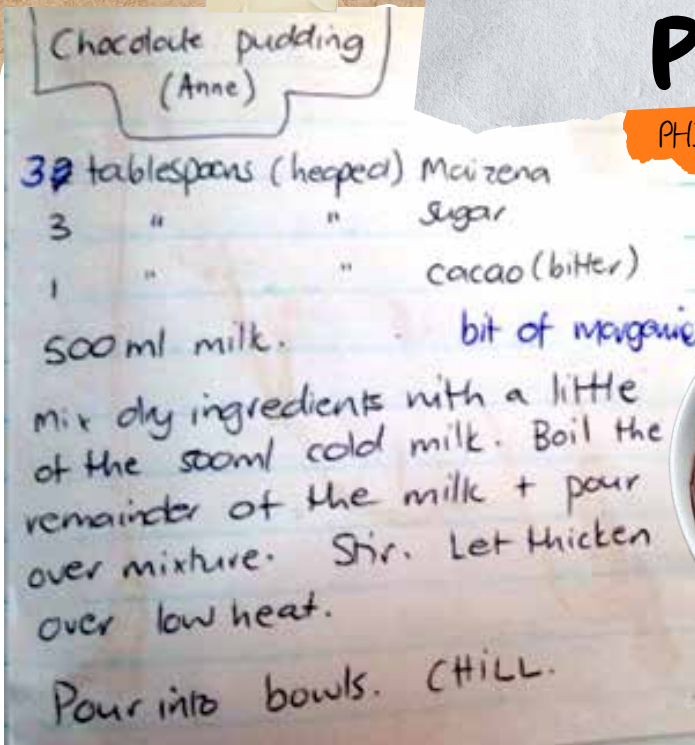 Chocolate pudding
(Anne)
P
PHI
3 tablespoons (heaped) Maizena
3 " " sugar
1 " " cacao (bitter)
500 ml milk.
bit of
mix dry ingredients with a little
of the 500ml cold milk. Boil the
remainder of the milk + pour
over mixture. Stir. Let thicken
over low heat.
Pour into bowls. CHILL.